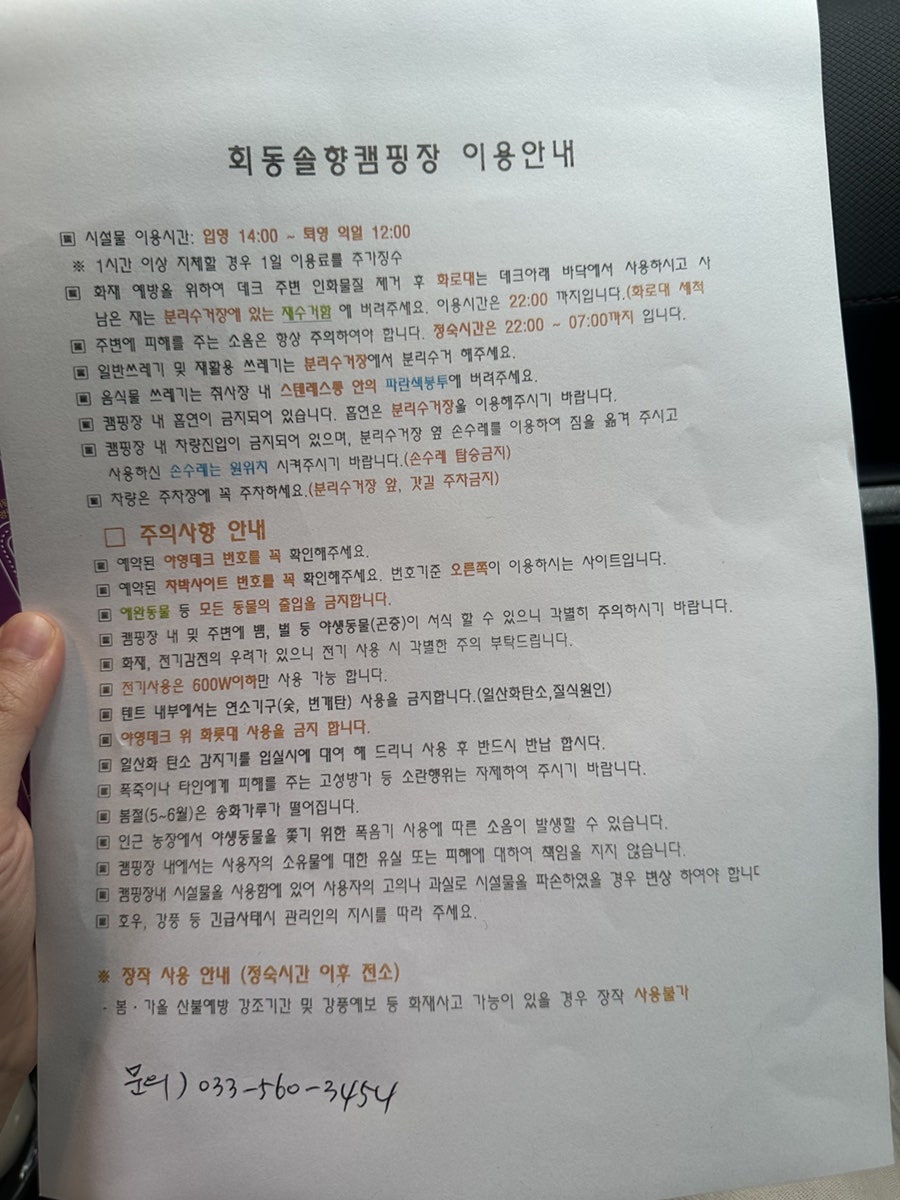 회동솔향캠핑장 이용안내
▣ 시설물 이용시간: 입영 14:00 ~ 퇴영 익일 12:00
※ 1시간 이상 지체할 경우 1일 이용료를 추가징수
▣ 화재 예방을 위하여 데크 주변 인화물질 제거 후 화로대는 데크아래 바닥에서 사용하시고 사
남은 재는 분리수거장에 있는 재수거함 에 버려주세요. 이용시간은 22:00 까지입니다.(화로대 세척
▣ 주변에 피해를 주는 소음은 항상 주의하여야 합니다. 정숙시간은 22:00 ~ 07:00까지 입니다.
▣ 일반쓰레기 및 재활용 쓰레기는 분리수거장에서 분리수거 해주세요.
▣ 음식물 쓰레기는 취사장 내 스텐레스통 안의 파란색봉투에 버려주세요.
▣ 캠핑장 내 흡연이 금지되어 있습니다. 흡연은 분리수거장을 이용해주시기 바랍니다.
▣ 캠핑장 내 차량진입이 금지되어 있으며, 분리수거장 옆 손수레를 이용하여 짐을 옮겨 주시고
사용하신 손수레는 원위치 시켜주시기 바랍니다.(손수레 탑승금지)
▣ 차량은 주차장에 꼭 주차하세요.(분리수거장 앞, 갓길 주차금지)
□ 주의사항 안내
▣ 예약된 야영데크 번호를 꼭 확인해주세요.
▣ 예약된 차박사이트 번호를 꼭 확인해주세요. 번호기준 오른쪽이 이용하시는 사이트입니다.
▣ 애완동물 등 모든 동물의 출입을 금지합니다.
▣ 캠핑장 내 및 주변에 뱀, 벌 등 야생동물(곤충)이 서식 할 수 있으니 각별히 주의하시기 바랍니다.
▣ 화재, 전기감전의 우려가 있으니 전기 사용 시 각별한 주의 부탁드립니다.
▣ 전기사용은 600W이하만 사용 가능 합니다.
▣ 텐트 내부에서는 연소기구(숯, 번개탄) 사용을 금지합니다.(일산화탄소,질식원인)
▣ 야영데크 위 화롯대 사용을 금지 합니다.
▣ 일산화 탄소 감지기를 입실시에 대여 해 드리니 사용 후 반드시 반납 합시다.
▣ 폭죽이나 타인에게 피해를 주는 고성방가 등 소란행위는 자제하여 주시기 바랍니다.
▣ 봄철(5~6월)은 송화가루가 떨어집니다.
▣ 인근 농장에서 야생동물을 쫓기 위한 폭음기 사용에 따른 소음이 발생할 수 있습니다.
▣ 캠핑장 내에서는 사용자의 소유물에 대한 유실 또는 피해에 대하여 책임을 지지 않습니다.
▣ 캠핑장내 시설물을 사용함에 있어 사용자의 고의나 과실로 시설물을 파손하였을 경우 변상 하여야 합니다
▣ 호우, 강풍 등 긴급사태시 관리인의 지시를 따라 주세요.
※ 장작 사용 안내 (정숙시간 이후 전소)
- 봄·가을 산불예방 강조기간 및 강풍예보 등 화재사고 가능이 있을 경우 장작 사용불가
문의) 033-560-3454